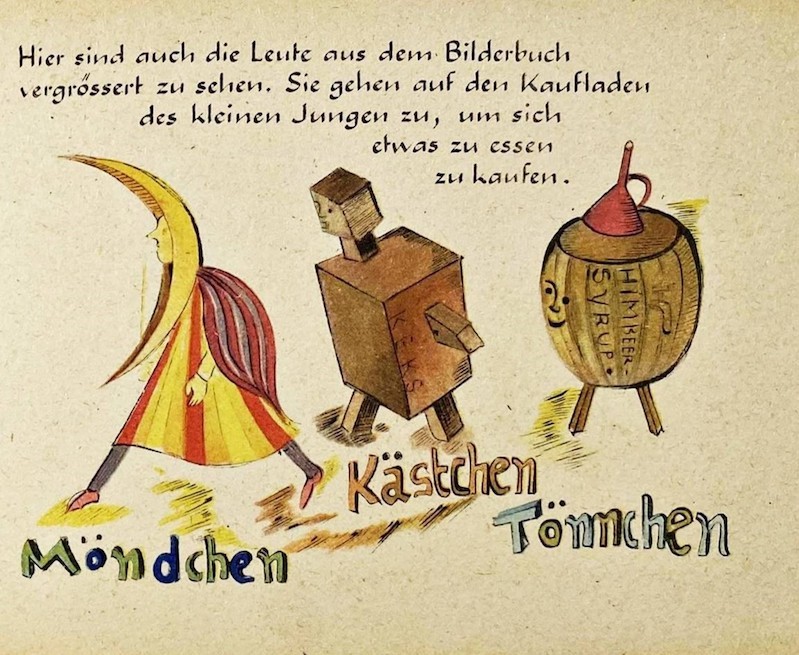 Hier sind auch die Leute aus dem Bilderbuch
vergrössert zu sehen. Sie gehen auf den Kaufladen
des kleinen Jungen zu, um sich
etwas zu essen
zu kaufen.
KEKS
HIMBEER-
SYRUP.
Kästchen
Tönnchen
Möndchen